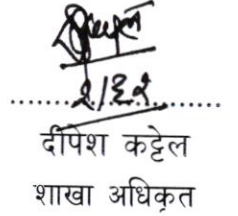 दीपेश कट्टेल
शाखा अधिकृत